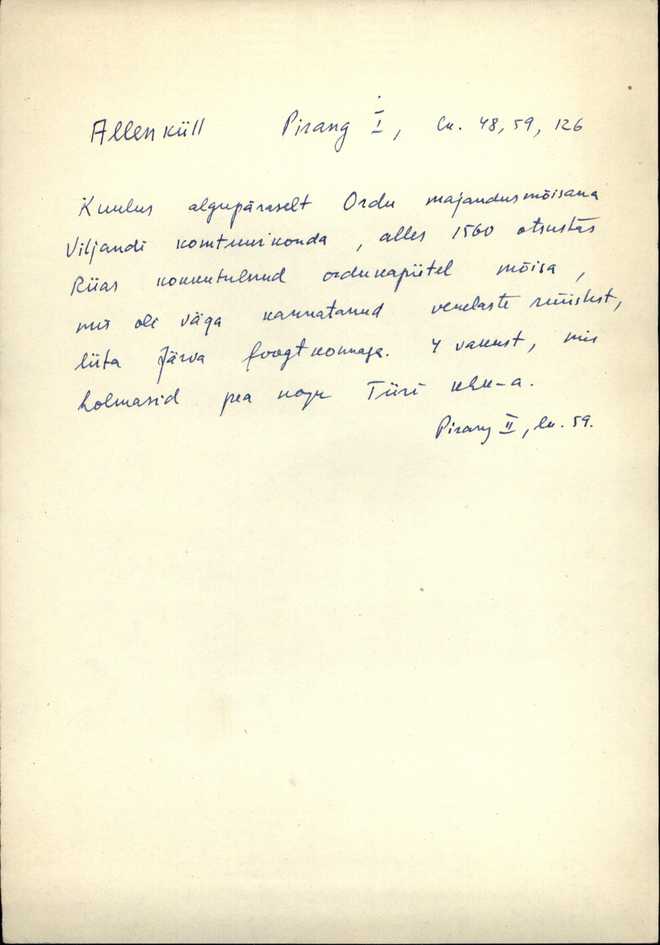 Allenküll Pirang I, lk. 48, 59, 126
Kuulus algupäraselt Ordu majandusmõisana
Viljandi komtuurkonda, alles 1560 otsustas
Riias kokkutulnud ordukapiitel mõisa,
mis oli väga kannatanud venelaste rüüstest,
liita Järva foogtkonnaga. 4 vakust, mis
hõlmasid pea kogu Türi khk-a.
Pirang II, lk. 59.